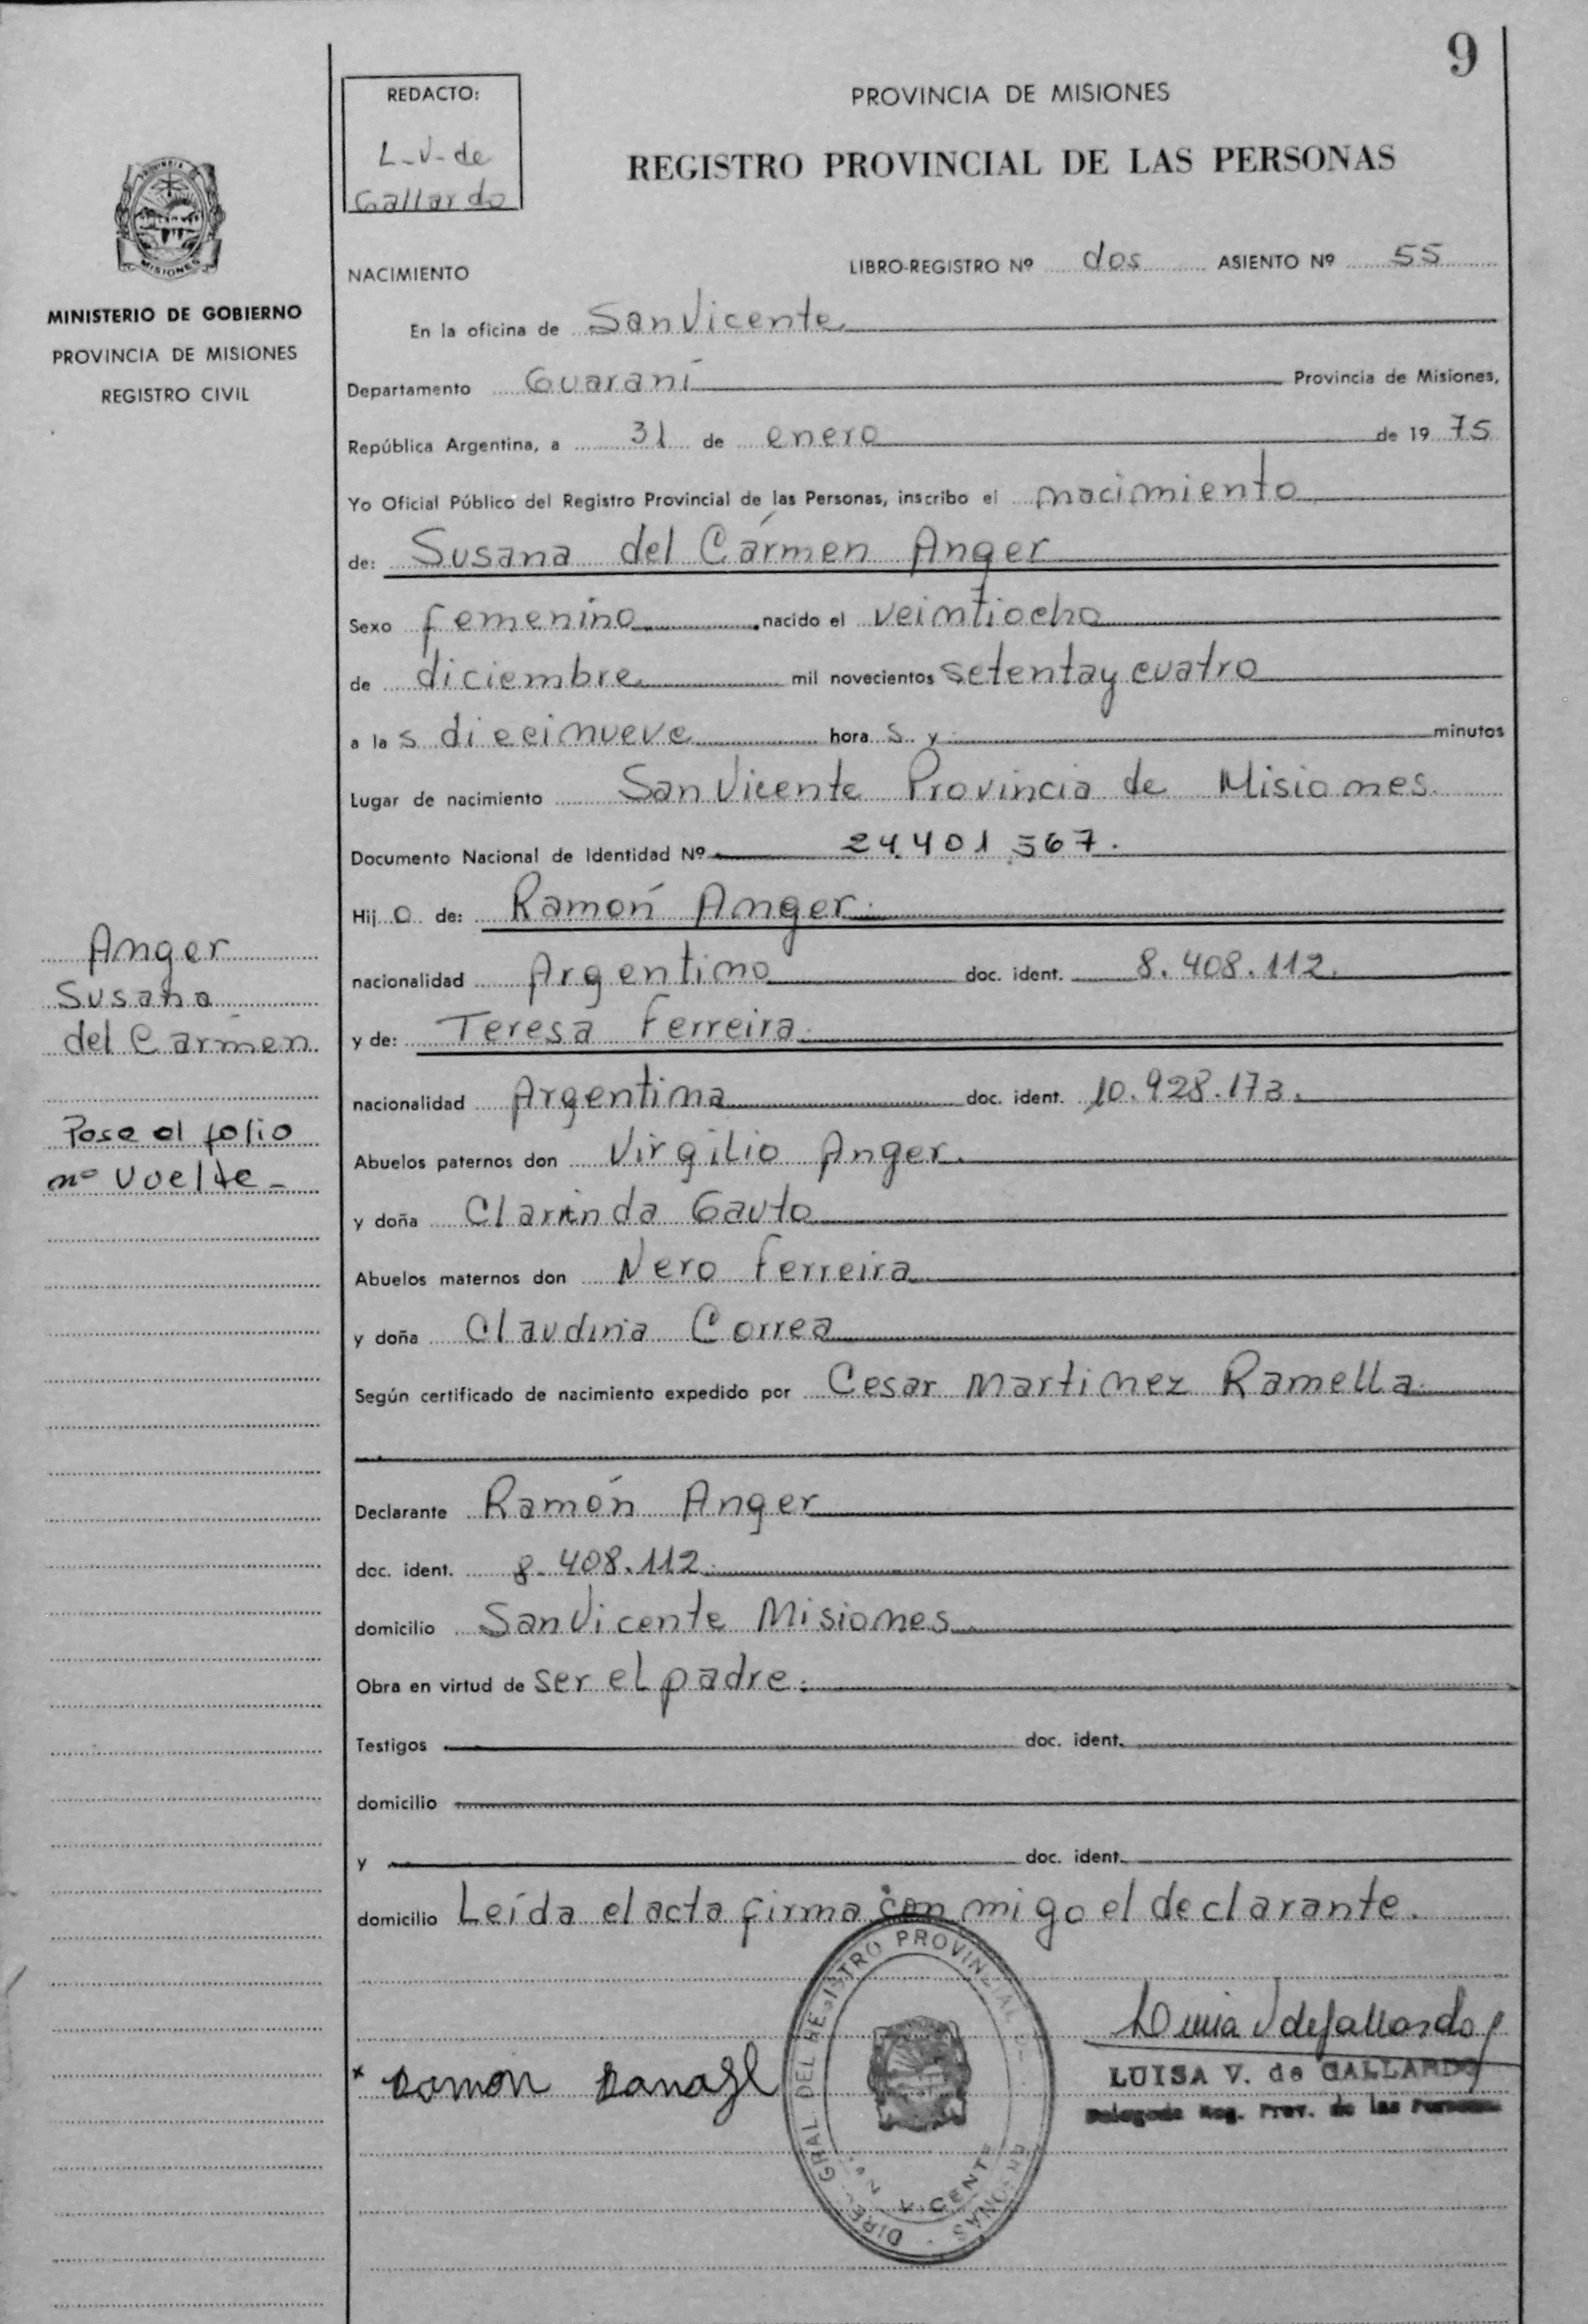 9
REDACTO:
L-V-de
Gallardo
PROVINCIA DE MISIONES
REGISTRO PROVINCIAL DE LAS PERSONAS
MISIONES
MINISTERIO DE GOBIERNO
PROVINCIA DE MISIONES
REGISTRO CIVIL
NACIMIENTO
LIBRO-REGISTRO Nº dos ASIENTO Nº 55
En la oficina de San Vicente
Departamento Guaraní Provincia de Misiones,
República Argentina, a 31 de enero de 19 75
Yo Oficial Público del Registro Provincial de las Personas, inscribo el nacimiento
de: Susana del Cármen Anger
Sexo femenino nacido el veintiocho
de diciembre mil novecientos setenta y cuatro
a la s diecinueve hora s y minutos
Lugar de nacimiento San Vicente Provincia de Misiones.
Documento Nacional de Identidad Nº 24.401.567.
Hij a de: Ramón Anger.
nacionalidad Argentino doc. ident. 8.408.112.
y de: Teresa Ferreira.
nacionalidad Argentina doc. ident. 10.928.173.
Abuelos paternos don Virgilio Anger.
y doña Clarinda Gauto
Abuelos maternos don Nero Ferreira
y doña Claudina Correa
Según certificado de nacimiento expedido por Cesar Martinez Ramella.
Declarante Ramón Anger
doc. ident. 8.408.112.
domicilio San Vicente Misiones
Obra en virtud de ser el padre.
Testigos doc. ident.
domicilio
y doc. ident.
domicilio Leída el acta firma con migo el declarante.
Anger
Susana
del Carmen
Pase al folio
nº vuelte-
LUISA V. de GALLARDO
Delegada Reg. Prov. de las Personas
V. CENTE